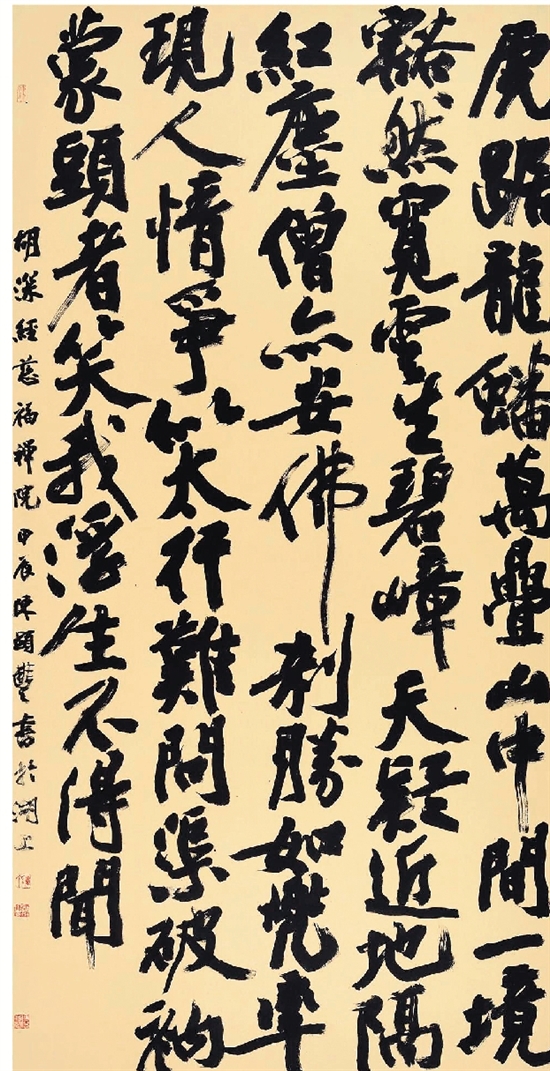 虎踞龍蟠萬疊山中間一境
豁然寬雲生碧嶂天疑近地隔
紅塵僧亦安佛刹勝如兜率
現人情爭似太行難問渠破衲
蒙頭者笑我浮生不得閒
胡深經慈福禪院甲辰陳書於湖上